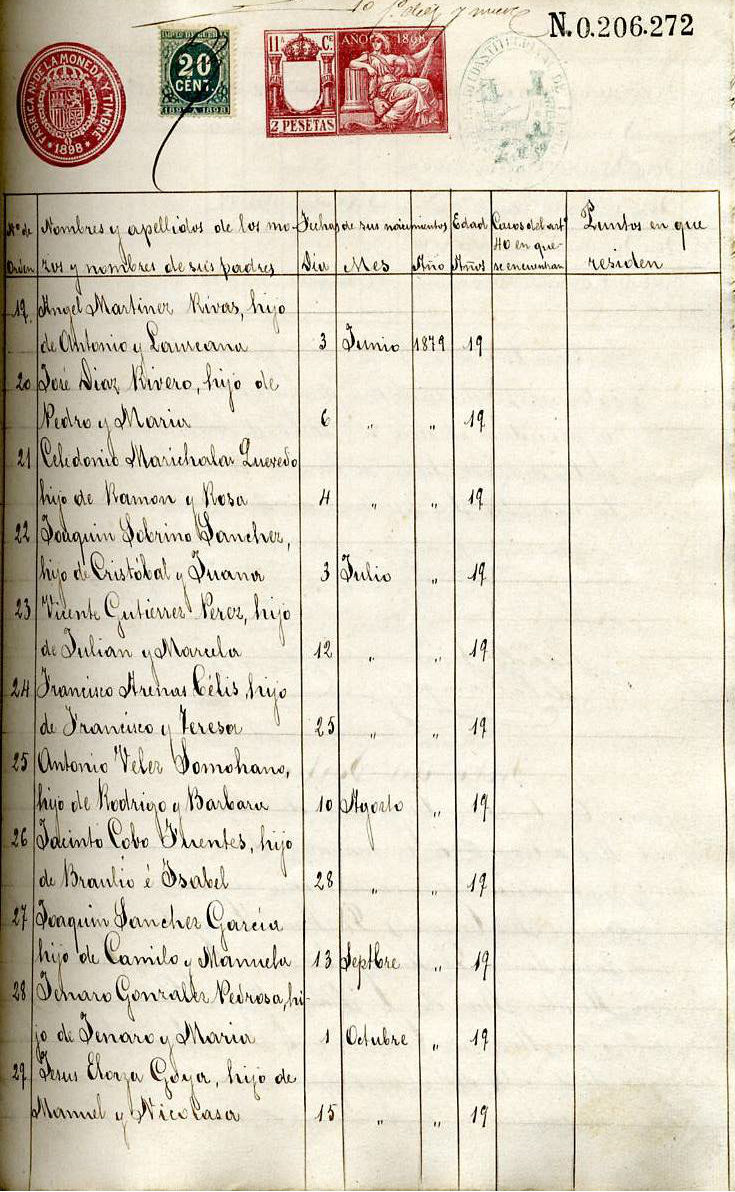 N. 0.206.272
FABRICA Nal DE LA MONEDA Y TIMBRE
* 1898 *
IMPTO DE GUERRA
20
CENT.
1897 A 1898
11ª Ce
AÑO 1898
2 PESETAS
Nº de Orden
Nombres y apellidos de los mo-
zos y nombres de sus padres
Fechas de sus nacimientos
Dia Mes Año
Edad
Años
Casos del artº
40 en que
se encuentran
Puntos en que
residen
19. Angel Martinez Rivas, hijo
de Antonio y Laureana 3 Junio 1879 19
20 José Diaz Rivero, hijo de
Pedro y Maria 6 " " 19
21 Celedonio Marichalar Quevedo
hijo de Ramon y Rosa 4 " " 19
22 Joaquin Sobrino Sanchez,
hijo de Cristóbal y Juana 3 Julio " 19
23 Vicente Gutierrez Perez, hijo
de Julian y Marcela 12 " " 19
24 Francisco Arenas Célis, hijo
de Francisco y Teresa 25 " " 19
25 Antonio Velez Somohano,
hijo de Rodrigo y Barbara 10 Agosto " 19
26 Jacinto Cobo Fuentes, hijo
de Braulio é Isabel 28 " " 19
27 Joaquin Sanchez García
hijo de Camilo y Manuela 13 Septbre " 19
28 Jenaro Gonzalez Pedrosa, hi-
jo de Jenaro y Maria 1 Octubre " 19
29 Jesus Elorza Goya, hijo de
Manuel y Nicolasa 15 " " 19